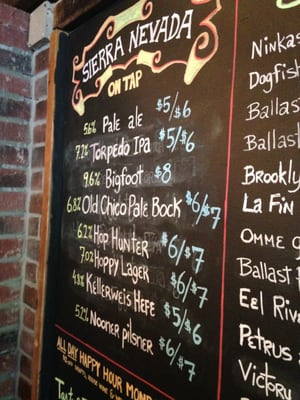 SIERRA NEVADA
ON TAP
5.6% Pale ale $5/$6
7.2% Torpedo Ipa $5/$6
9.6% Bigfoot $8
6.8% Old Chico Pale Bock $6/$7
6.2% Hop Hunter $6/$7
7.0% Hoppy Lager $6/$7
4.8% Kellerweis Hefe $5/$6
5.2% Nooner pilsner $6/$7
ALL DAY HAPPY HOUR MOND
Ninkas
Dogfish
Ballast
Ballast
Brookly
La Fin
OMME
Ballast
Eel River
PETRUS
VICTORY